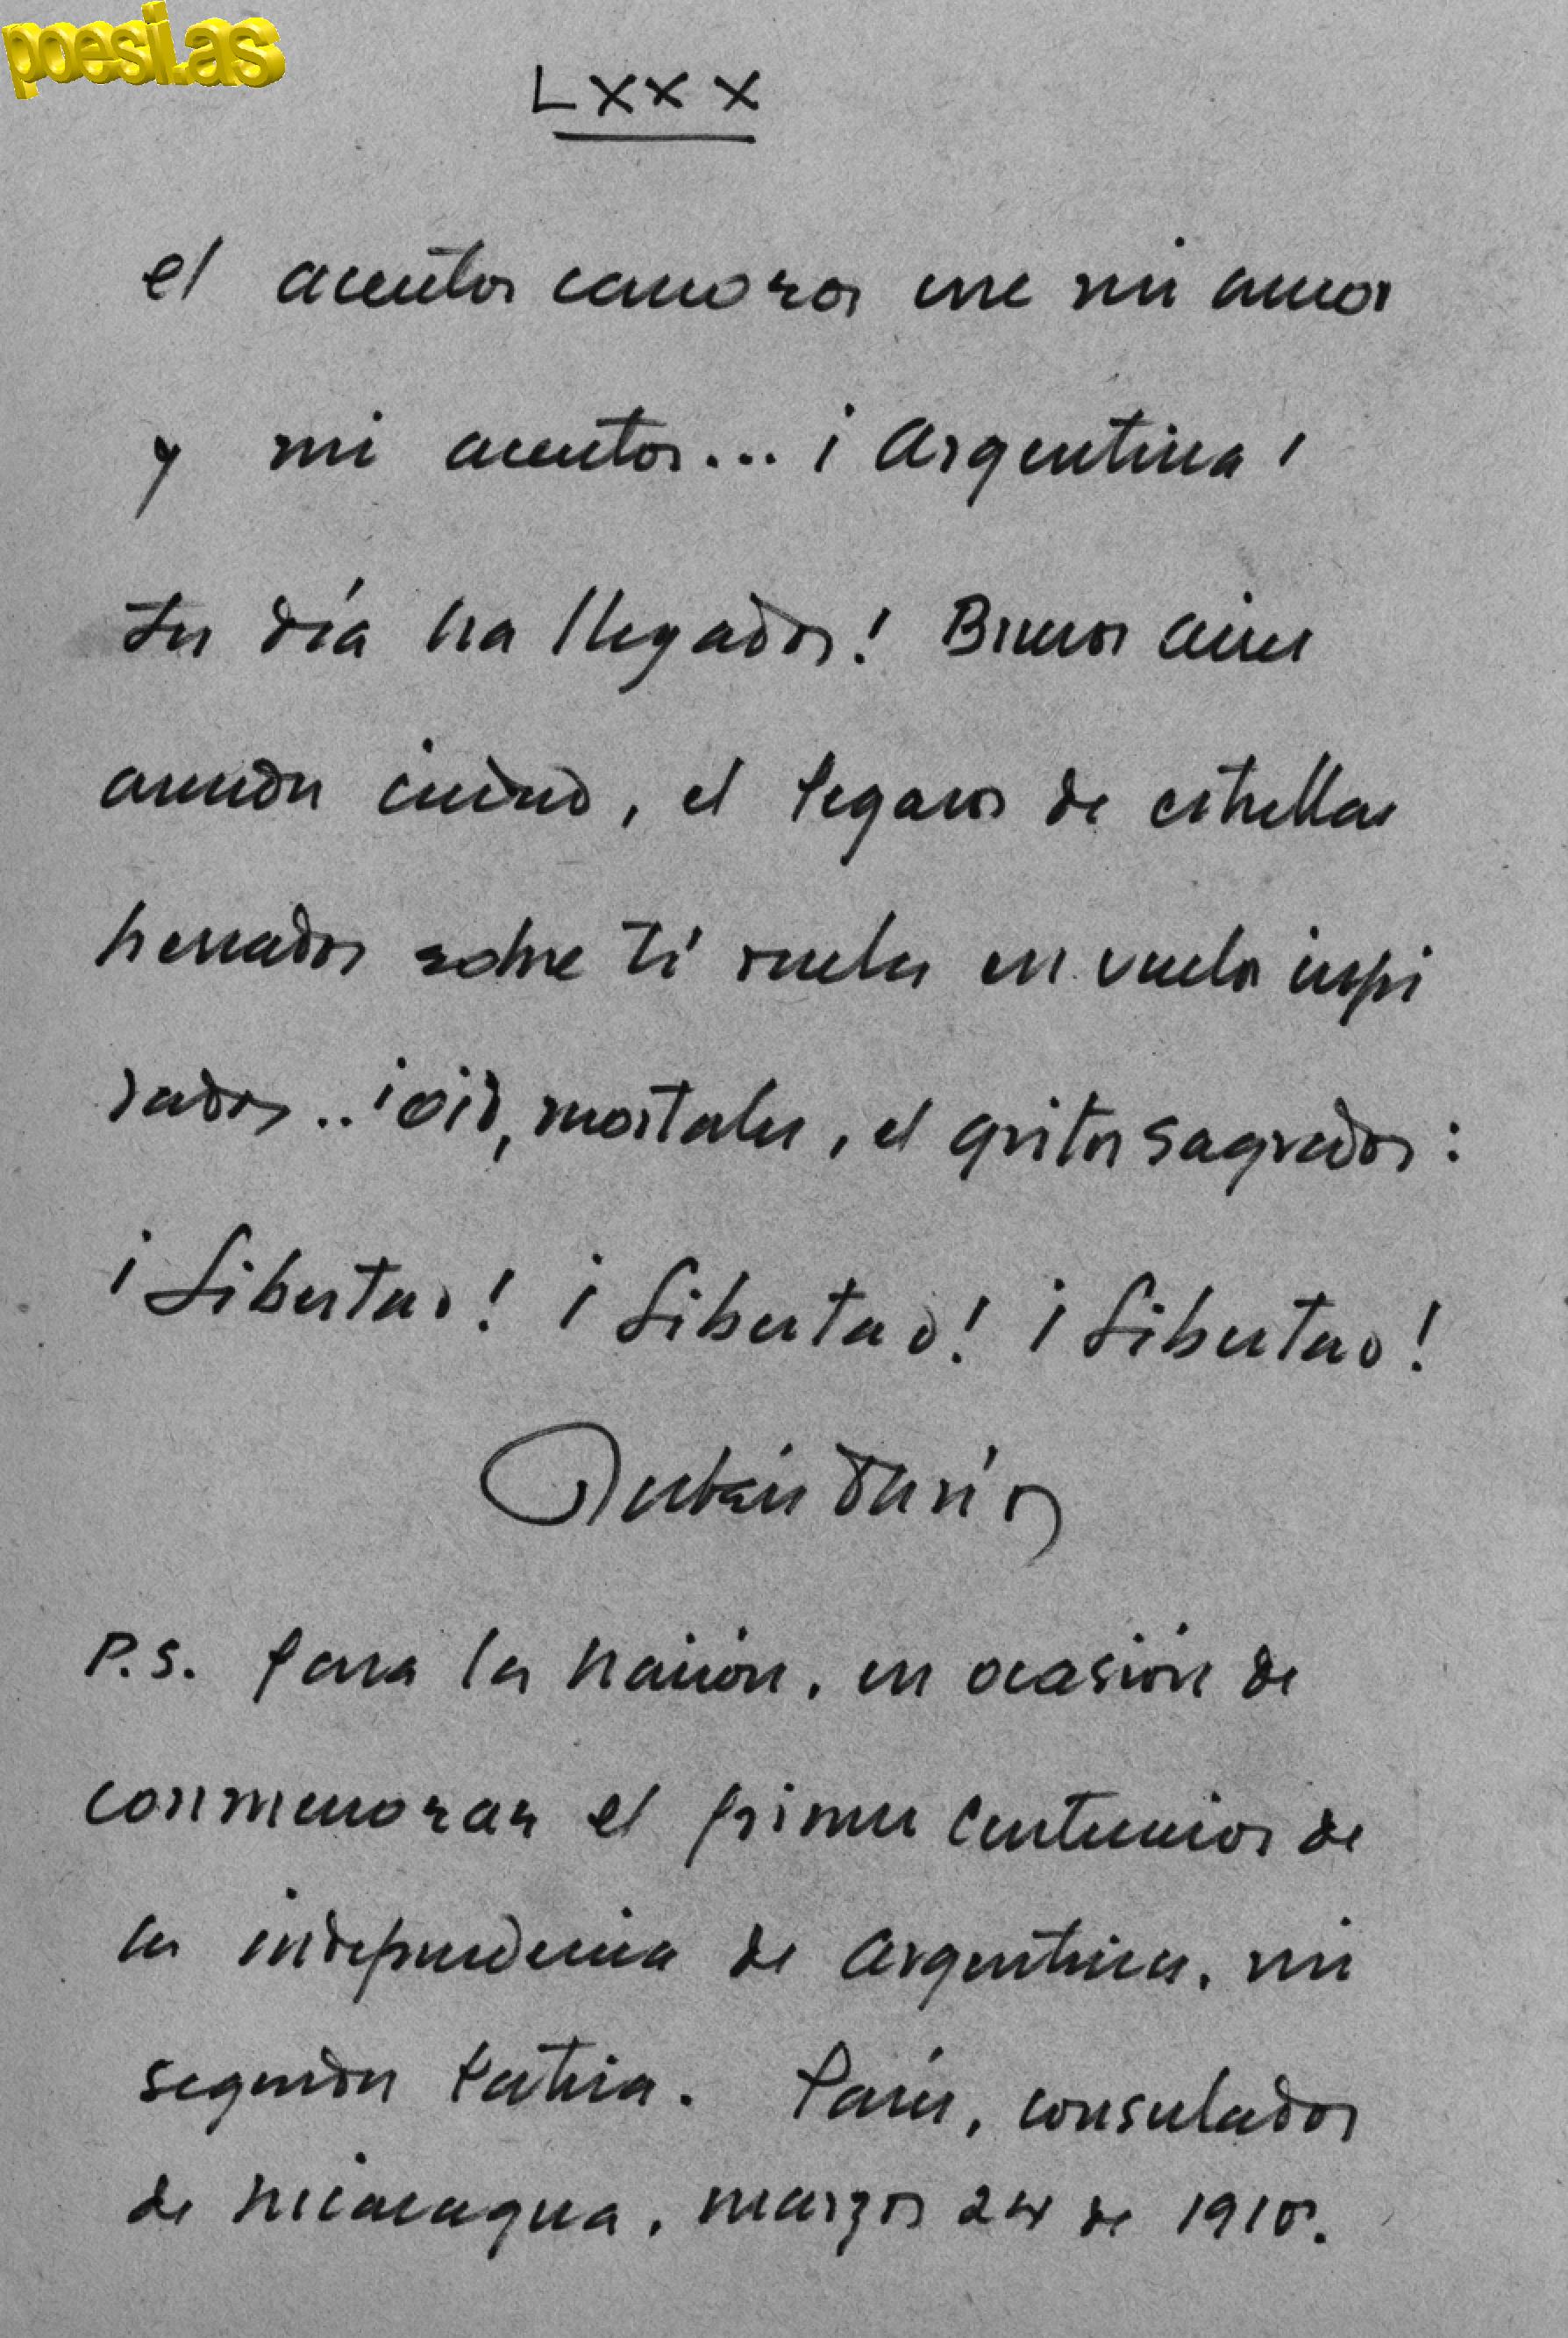 poesi.as
LXXX
el acento canoro une mi amor
y mi acento... ¡Argentina!
tu día ha llegado! Buenos Aires
amada ciudad, el Pegaso de estrellas
herrado sobre ti vuela en vuelo inspi
rado.. ¡oíd, mortales, el grito sagrado:
¡Libertad! ¡Libertad! ¡Libertad!
Rubén Darío
P.S. para la Nación, en ocasión de
conmemorar el primer Centenario de
la independencia de Argentina, mi
segunda Patria. París, consulado
de Nicaragua, marzo 24 de 1910.